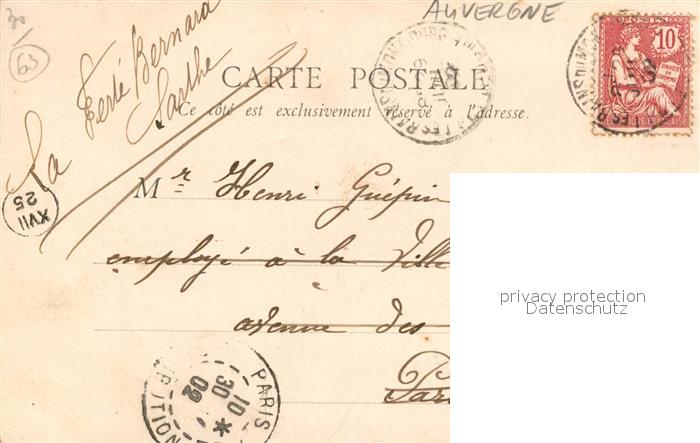 30
63
AUVERGNE
CARTE POSTALE
Ce côté est exclusivement réservé à l'adresse.
La Ferté Bernard
Sarthe
POSTES
10
DROITS DE L'HOMME
REPUBLIQUE FRANÇAISE
XVII
25
Mr Henri Guépin
employé à la Ville
avenue des
Paris
privacy protection
Datenschutz
PARIS
10
30
02